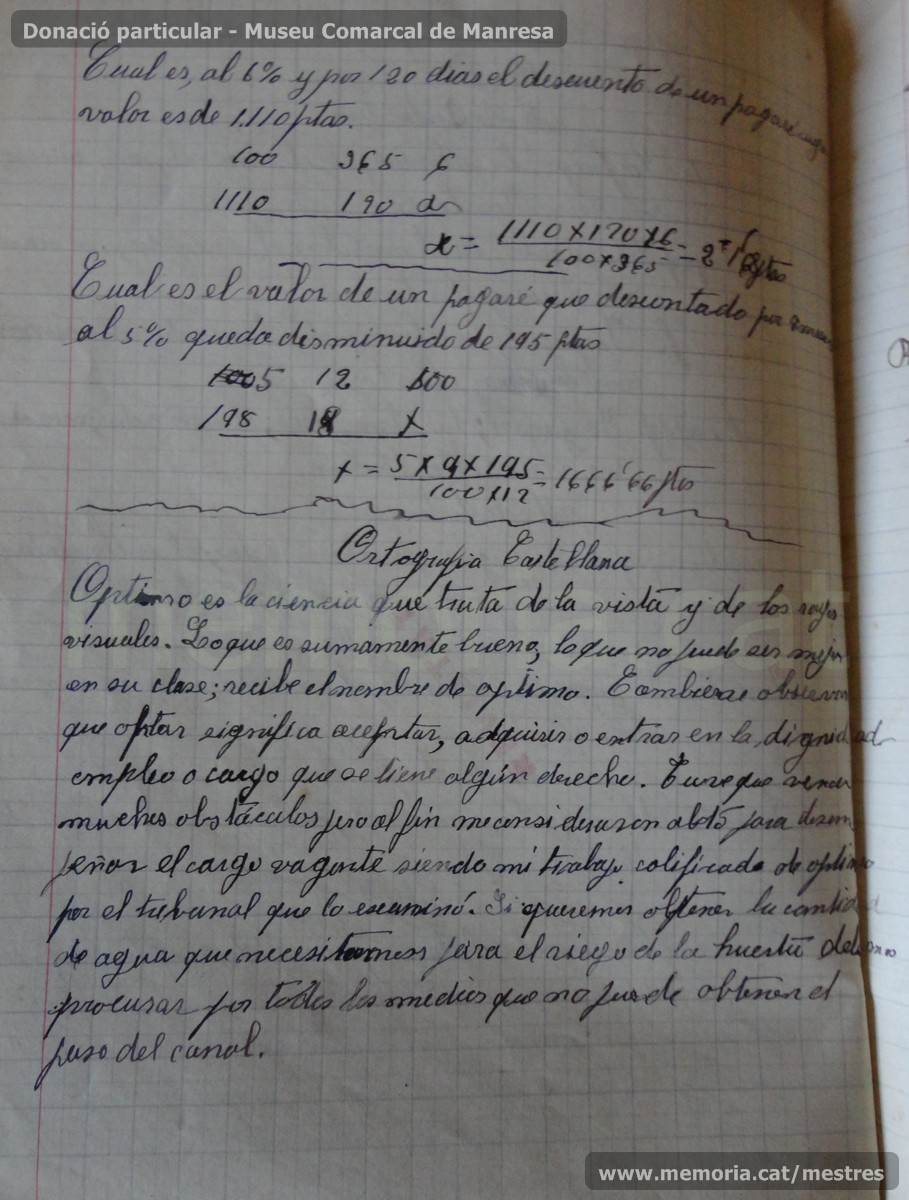 Donació particular - Museu Comarcal de Manresa
Cual es, al 6% y por 120 dias el descuento de un pagaré cuyo
valor es de 1.110 ptas.
100 365 6
1110 190 x
x = 1110×170×6
100×365
Cual es el valor de un pagaré que descontado por
al 5% queda disminuido de 195 ptas
5 12 100
198 x
x = 5×9×195 = 1666'66 ptas
100×12
Ortografia Castellana
es la ciencia que trata de la vista y de los rayos
visuales. Lo que es sumamente bueno, lo que no puede ser mejor
en su clase; recibe el nombre de optimo.
que optar significa aceptar, adquirir o entrar en la dignidad
empleo o cargo que se tiene algún derecho. Tuve que vencer
muchos obstáculos pero al fin me consideraron abto para desem
peñar el cargo vagante siendo mi trabajo calificado de optimo
por el tribunal que lo examinó. Si queremos obtener la cantidad
de agua que necesitamos para el riego de la huerta debemos
procurar por todos los medios que no puede obtener el
paso del canal.
www.memoria.cat/mestres